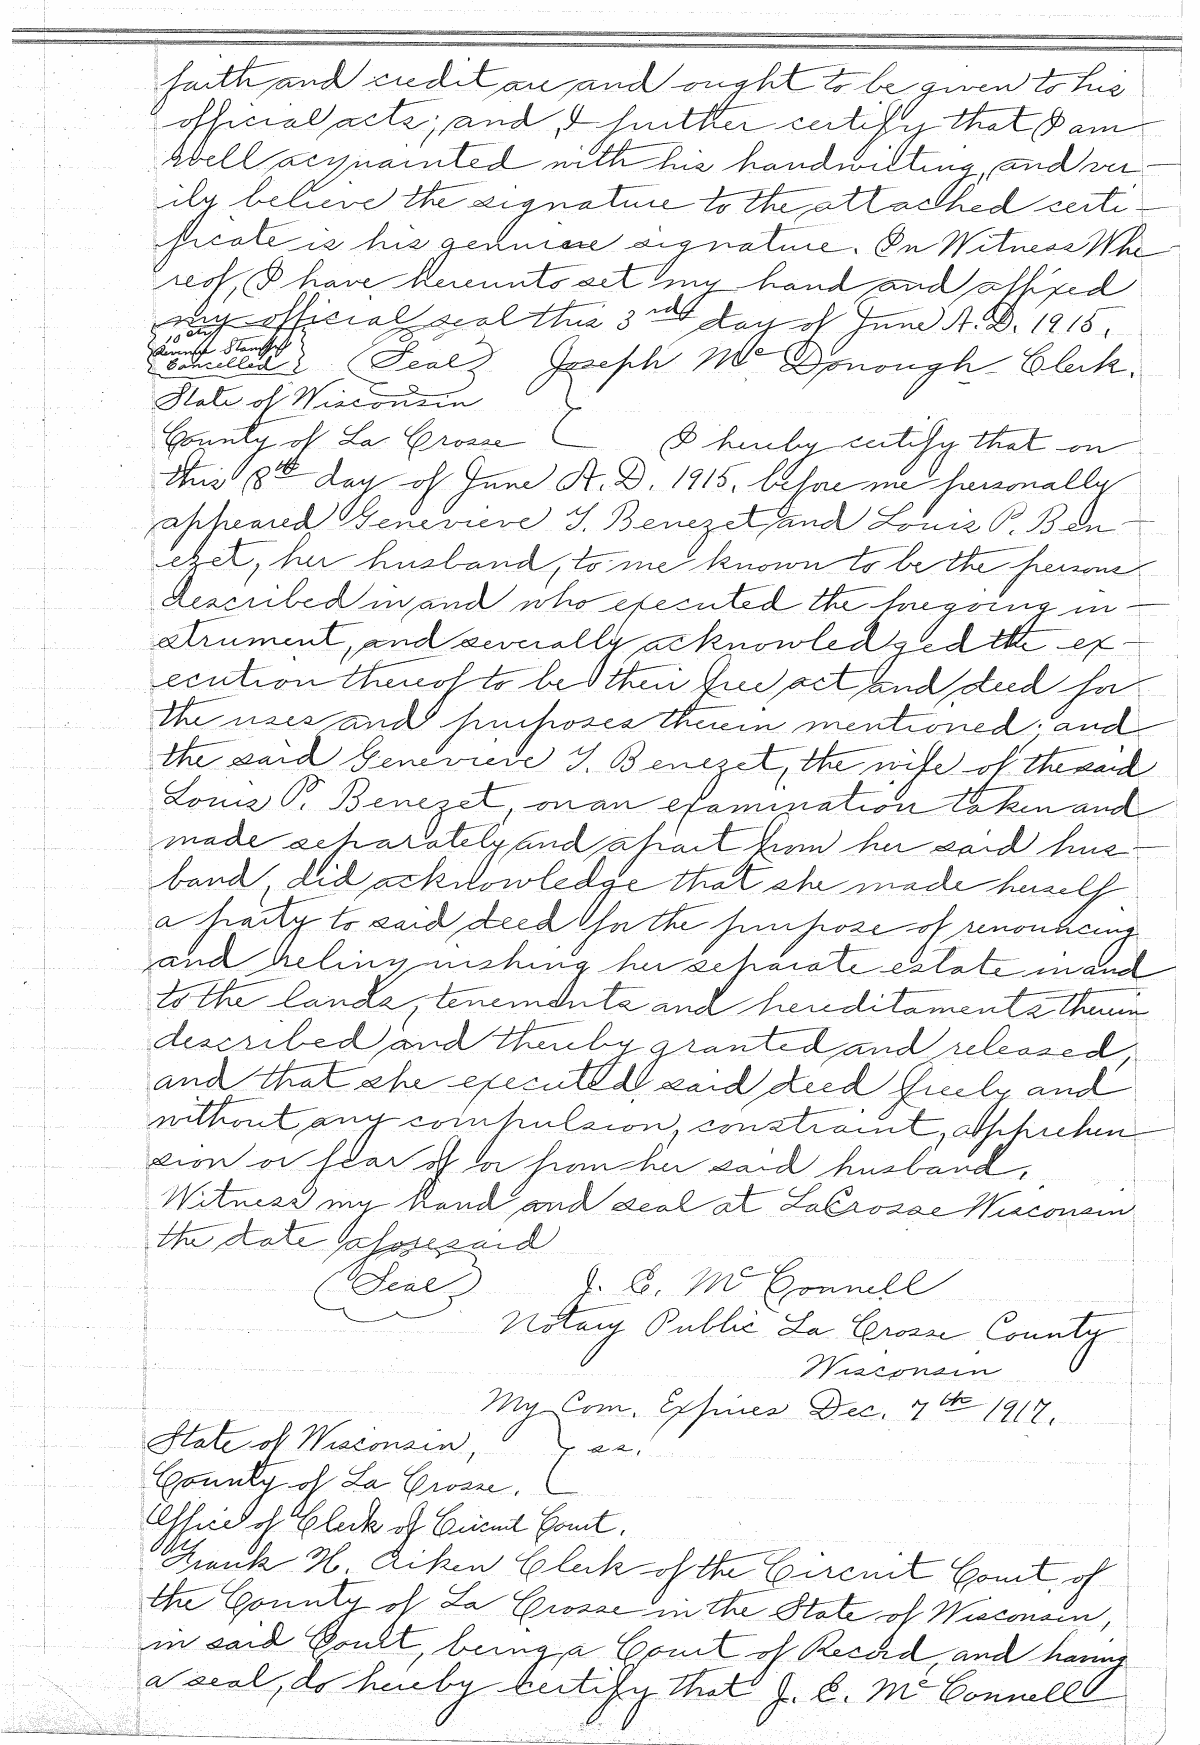 faith and credit are and ought to be given to his
official acts; and, I further certify that I am
well acquainted with his handwriting, and ver-
ily believe the signature to the attached certi-
ficate is his genuine signature. In Witness Whe
reof, I have hereunto set my hand and affixed
my official seal this 3rd day of June A.D. 1915.
10 cts
Revenue Stamps
Cancelled
(Seal) Joseph McDonough Clerk.
State of Wisconsin
County of La Crosse I hereby certify that on
this 8th day of June A.D. 1915, before me personally
appeared Genevieve Y. Benezet and Louis P. Ben-
ezet, her husband, to me known to be the persons
described in and who executed the foregoing in-
strument, and severally acknowledged the ex-
ecution thereof to be their free act and deed for
the uses and purposes therein mentioned; and
the said Genevieve Y. Benezet, the wife of the said
Louis P. Benezet, on an examination taken and
made separately and apart from her said hus-
band, did acknowledge that she made herself
a party to said deed for the purpose of renouncing
and relinquishing her separate estate in and
to the lands, tenements and hereditaments therein
described and thereby granted and released,
and that she executed said deed freely and
without any compulsion, constraint, apprehen
sion or fear of or from her said husband.
Witness my hand and seal at LaCrosse Wisconsin
the date aforesaid
(Seal) J. E. McConnell
Notary Public La Crosse County
Wisconsin
My Com. Expires Dec. 7th 1917.
State of Wisconsin, ss.
County of La Crosse.
Office of Clerk of Circuit Court.
Frank H. Aiken Clerk of the Circuit Court, of
the County of La Crosse in the State of Wisconsin,
in said Court, being a Court of Record, and having
a seal, do hereby certify that J. E. McConnell